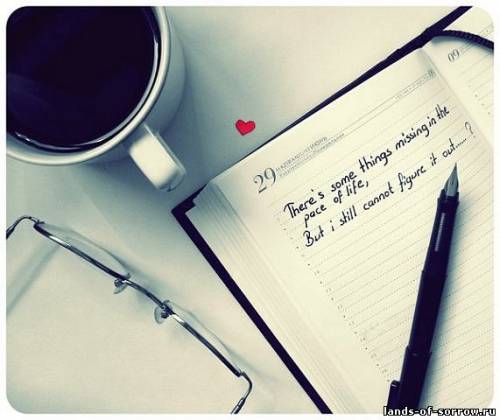 29
There's some things missing in the
pace of life,
But i still cannot figure it out.....?
09
lands-of-sorrow.ru